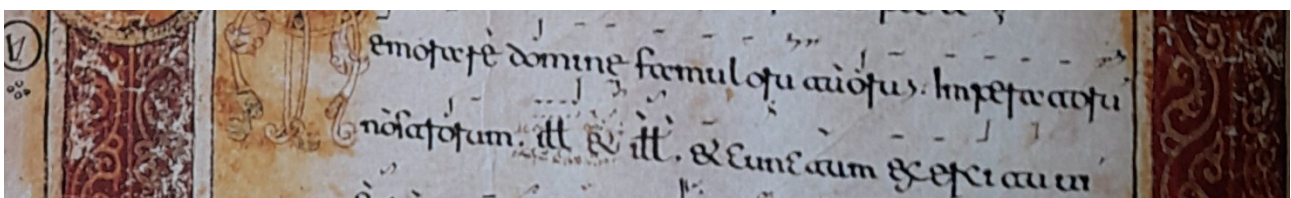 emorare domine famuloru tuorum. Imperatoru
nostrorum. ill & ill. & cunctum exercitum